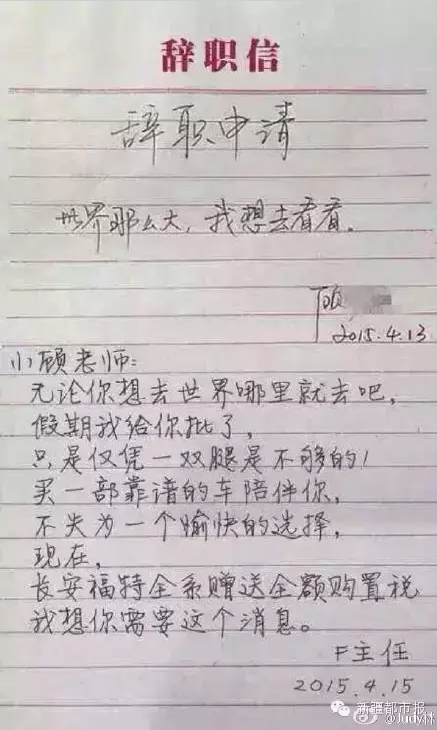 辞职信
辞职申请
世界那么大，我想去看看。
顾
2015.4.13
小顾老师：
无论你想去世界哪里就去吧，
假期我给你批了，
只是仅凭一双腿是不够的！
买一部靠谱的车陪伴你，
不失为一个愉快的选择，
现在，
长安福特全系赠送全额购置税
我想你需要这个消息。
F主任
2015.4.15
新疆都市报
@Judy林